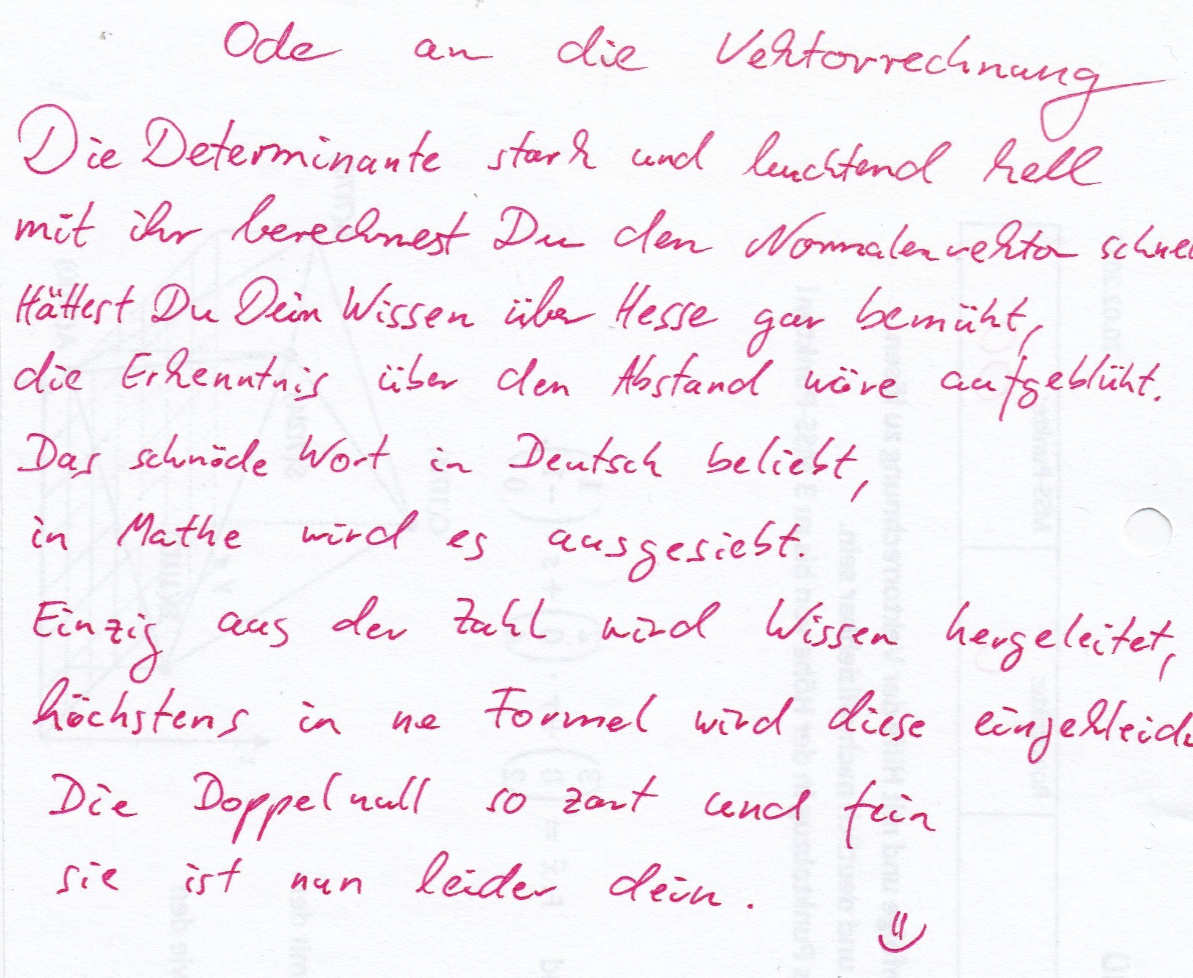 Ode an die Vektorrechnung
Die Determinante stark und leuchtend hell
mit ihr berechnest Du den Normalenvektor schnel
Hättest Du Dein Wissen über Hesse gar bemüht,
die Erkenntnis über den Abstand wäre aufgeblüht.
Das schnöde Wort in Deutsch beliebt,
in Mathe wird es ausgesiebt.
Einzig aus der Zahl wird Wissen hergeleitet,
höchstens in ne Formel wird diese eingekleide
Die Doppelnull so zart und fein
sie ist nun leider dein.